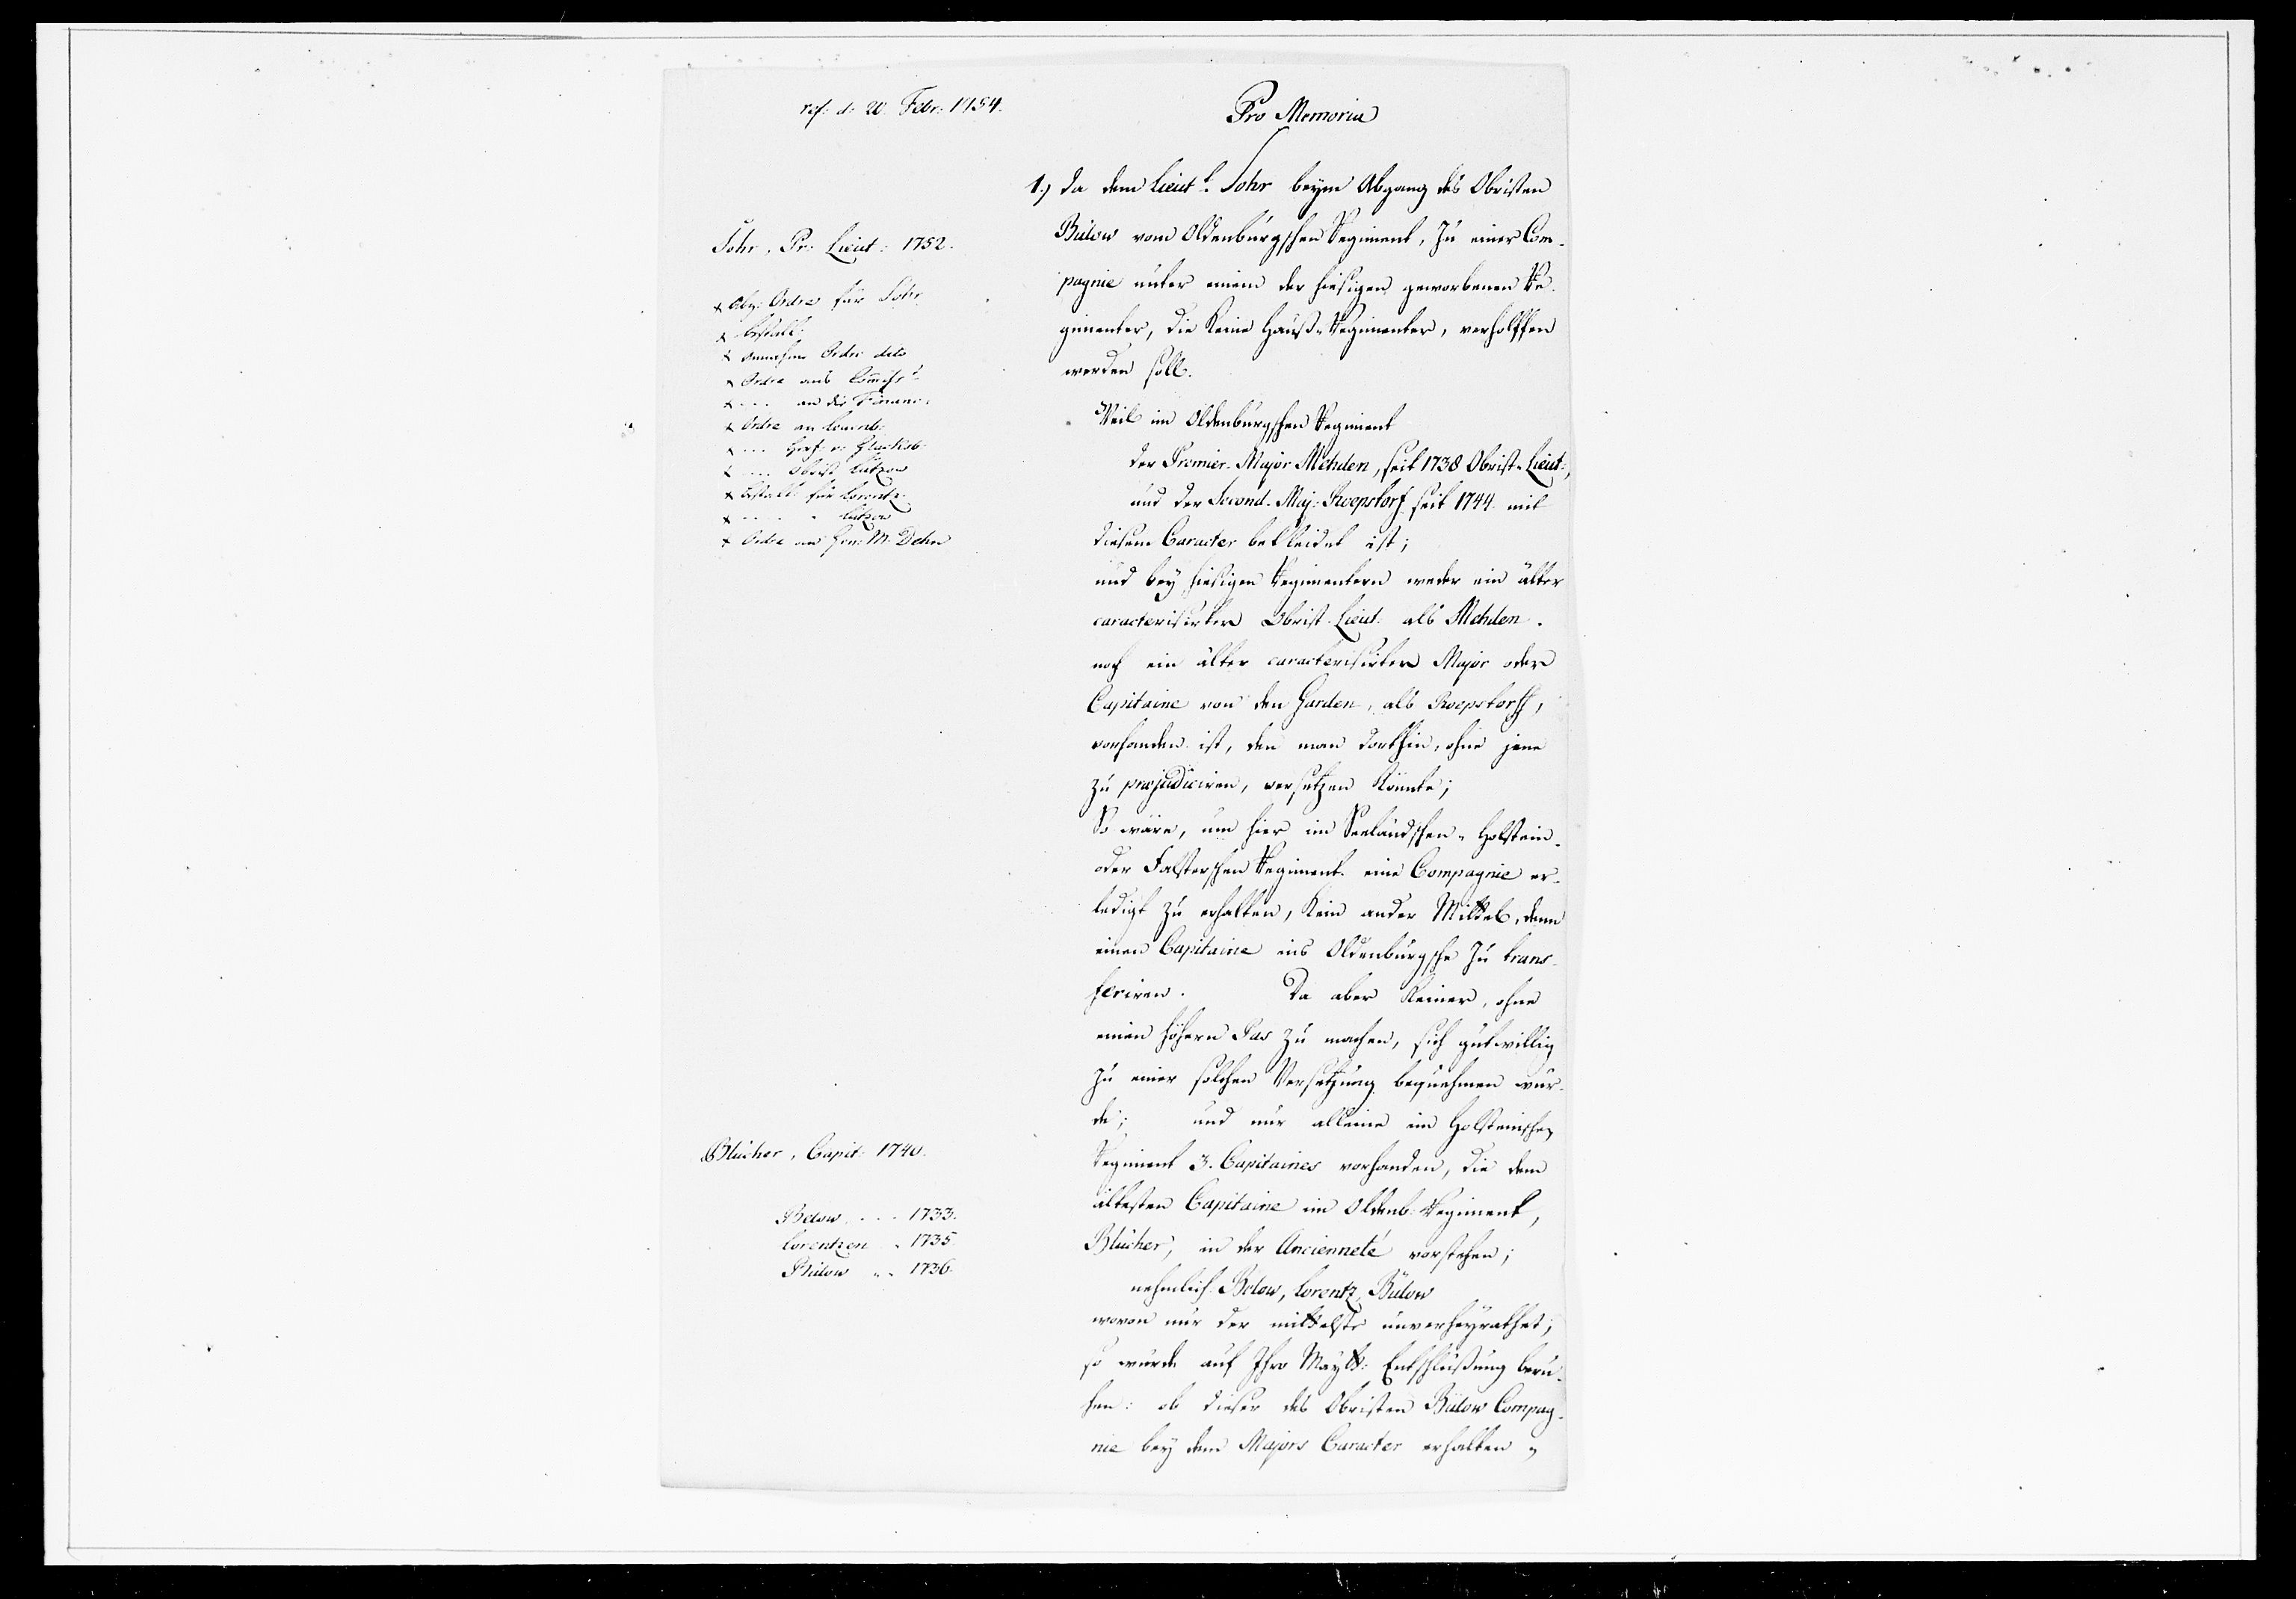 ref: d: 20. Febr: 1754.
Pro Memoria
1.) Da dem Lieut. Sohr beym Abgang des Obristen
Bülow vom Oldenburgschen Regiment, zu einer Com-
pagnie unter einem der hiesigen geworbenen Re-
gimenter, die keine Hauß-Regimenter, verholffen
werden soll.
Weil im Oldenburgschen Regiment
der Premier-Major Mehden, seit 1738 Obrist-Lieut:,
und der Second-Maj: Roepstorf seit 1744 mit
diesem Caracter bekleidet ist;
und bey hiesigen Regimentern weder ein älter
caracterisirter Obrist-Lieut. als Mehden.
noch ein älter caracterisirter Major oder
Capitaine von den Garden, als Roepstorff,
vorhanden ist, den man dorthin, ohne jene
zu præjudiciren, versetzen könnte;
So wäre, um hier im Seeländschen- Holstein-
oder Falsterschen Regiment eine Compagnie er-
ledigt zu erhalten, kein ander Mittel, denn
einen Capitaine ins Oldenburgsche zu trans-
feriren. Da aber keiner, ohne
einen höhern Pas zu machen, sich gutwillig
zu einer solchen Versetzung bequehmen wür-
de; und nur alleine im Holsteinschen
Regiment 3. Capitaines vorhanden, die dem
ältesten Capitaine im Oldenb. Regiment,
Blücher, in der Ancienneté vorstehen;
nehmlich Below, Lorentz, Bülow
wovon nur der mittelste unverheyrathet;
so würde auf Ihro Maytt: Entschlüßung beru-
hen: ob dieser des Obristen Bülow Compag-
nie bey dem Majors Caracter erhalten
Sohr, Pr. Lieut: 1752.
x Abg: Ordre für Sohr
x bestall:
x Ordre dito
x Ordre ans Commiss:
x ... an die Financ:
x Ordre an
x ...
x ... Obrist Lützow
x bestall: für Lorentz
x ... Lützow
x Ordre an M. Dehn
Blücher, Capit: 1740.
Below ... 1733.
Lorentzen . 1735
Bülow .. 1736.